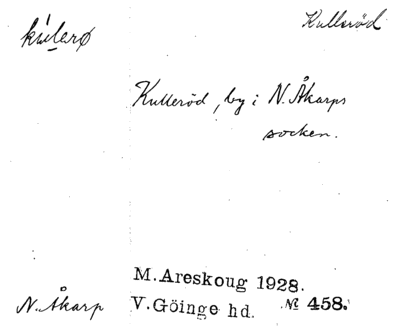 Kulleröd
kúlerø
Kulleröd, by i N. Åkarps
socken.
M. Areskoug 1928.
N. Åkarp V. Göinge hd. № 458.